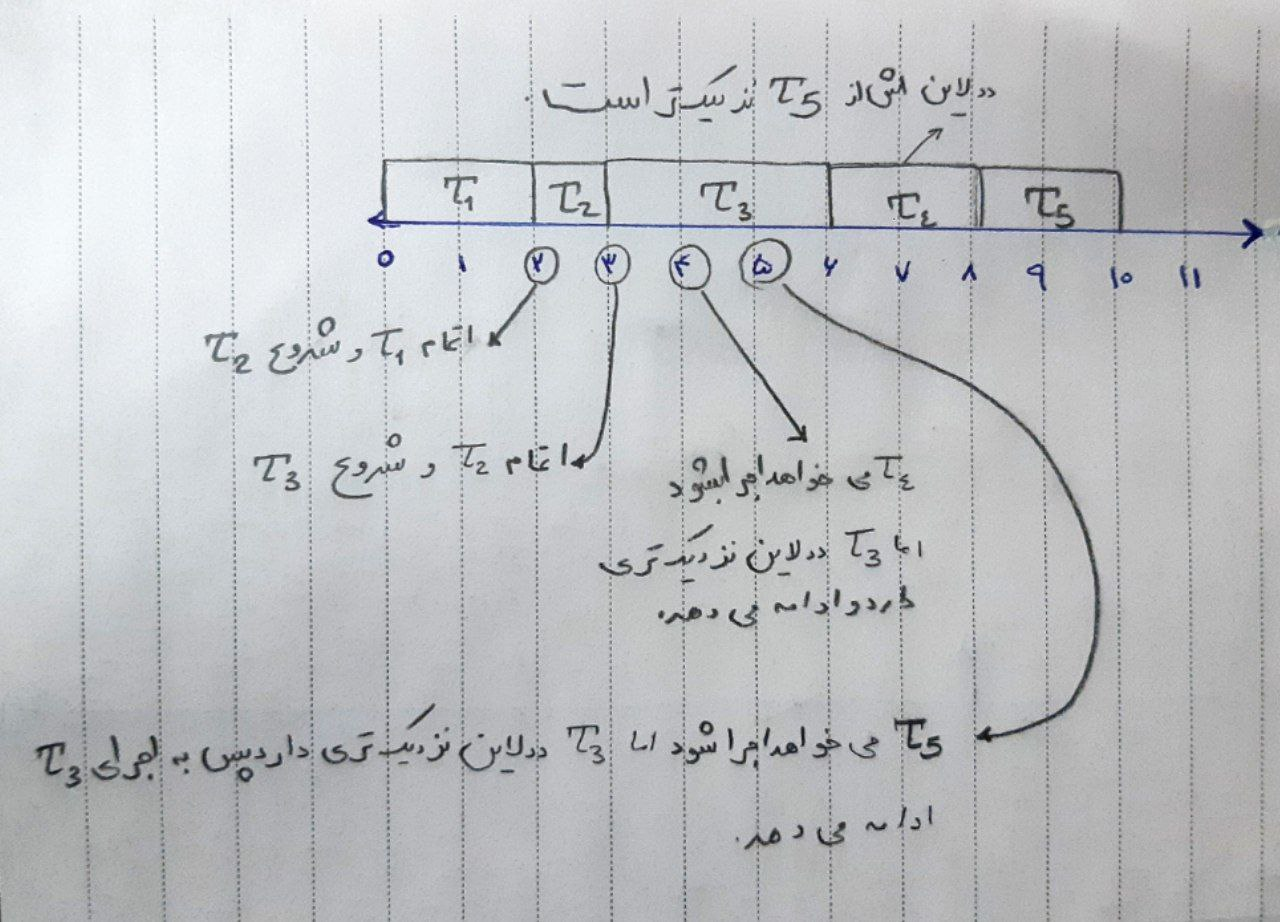 ددلاین اش از τ5 نزدیک تر است.
τ1 τ2 τ3 τ٤ τ5
٠ ١ ٢ ٣ ۴ ۵ ۶ ٧ ٨ ٩ ١٠ ١١
اتمام τ1 و شروع τ2
اتمام τ2 و شروع τ3
τ٤ می خواهد اجرا بشود
اما τ3 ددلاین نزدیک تری
دارد و ادامه می دهد.
τ5 می خواهد اجرا شود اما τ3 ددلاین نزدیک تری دارد پس به اجرای τ3
ادامه می دهد.